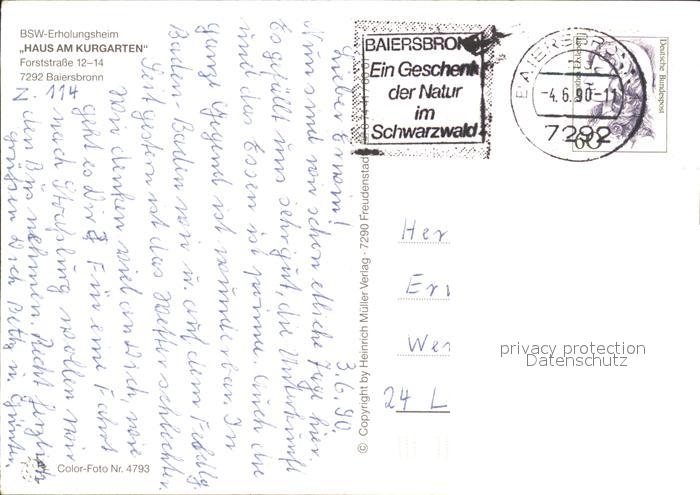 BSW-Erholungsheim
„HAUS AM KURGARTEN"
Forststraße 12–14
7292 Baiersbronn
Z. 114
3.6.90
Lieber Erwin!
Nun sind wir schon etliche Tage hier.
Es gefällt uns sehr gut, die Unterkunft
und das Essen ist prima. Auch die
ganze Gegend ist wunderbar. In
Baden-Baden war'n u. auf dem Feldbg.
Seit gestern ist das Wetter schlechter.
Wir denken viel an Dich, wie
geht es Dir? Für eine Fahrt
nach Straßburg wollen wir
den Bus nehmen. Recht herzlich
grüßen Dich Betty u. Günter
Color-Foto Nr. 4793
© Copyright by Heinrich Müller Verlag · 7290 Freudenstadt
BAIERSBRONN
Ein Geschenk
der Natur
im
Schwarzwald
BAIERSBRONN
-4.6.90-11
7292
Deutsche Bundespost
60
Her
Erw
Wer
24 L
privacy protection
Datenschutz